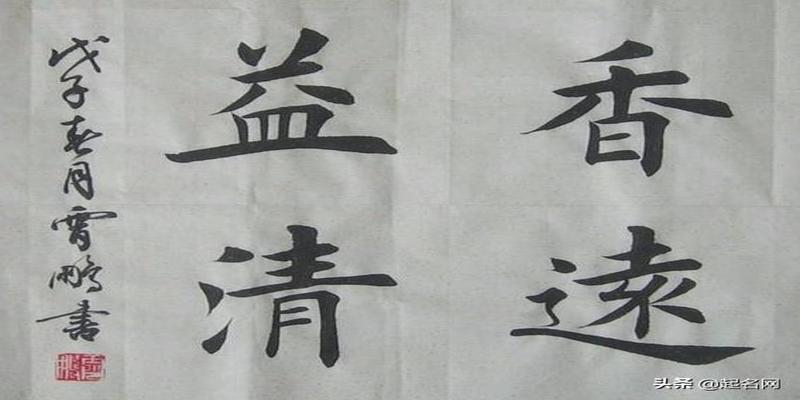 香遠
益清
戊子春月雪鵬书
头条 @起名网